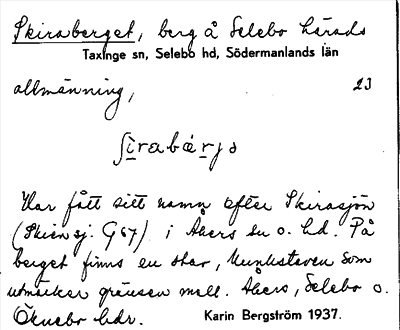 Skiraberget, berg å Selebo härads
Taxinge sn, Selebo hd, Södermanlands län
allmänning, 23
ʃi̱rabæṟjə
Har fått sitt namn efter Skirasjön
(Skiren sj. G67) i Åkers sn o. hd. På
berget finns en sten, Munkstaven som
utmärker gränsen mell. Åkers, Selebo o.
Öknebo hdr. Karin Bergström 1937.